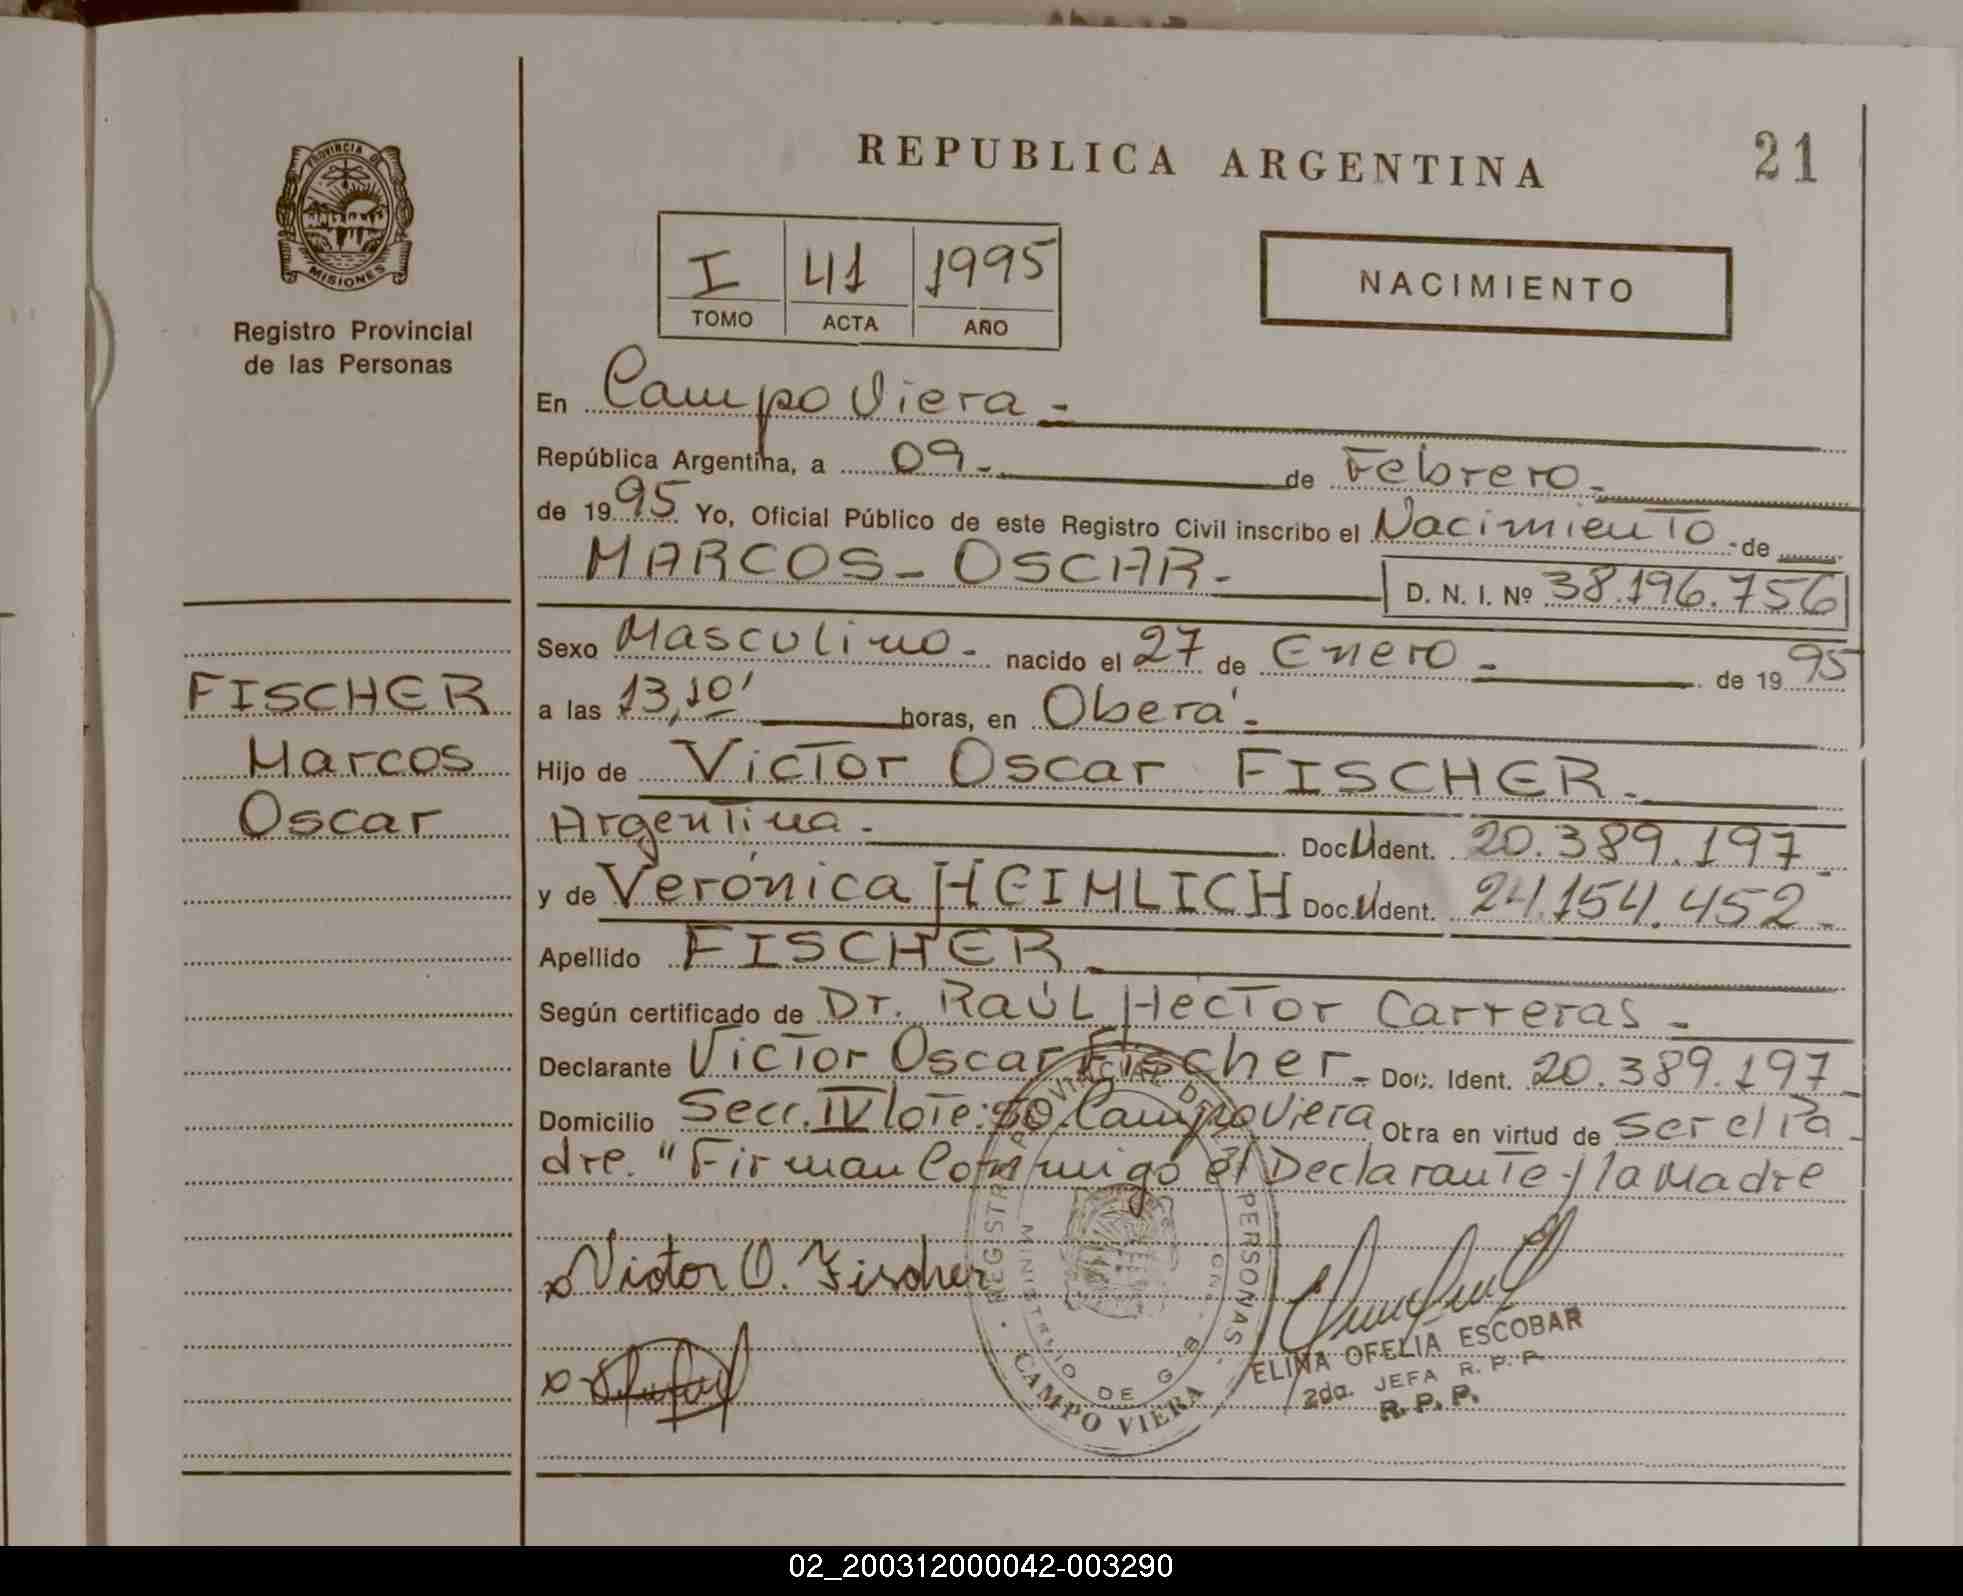 REPUBLICA ARGENTINA
21
PROVINCIA DE
MISIONES
Registro Provincial
de las Personas
I 41 1995
TOMO ACTA AÑO
NACIMIENTO
En Campo Viera -
República Argentina, a 09 - de Febrero -
de 1995 Yo, Oficial Público de este Registro Civil inscribo el Nacimiento - de
MARCOS - OSCAR - D. N. I. Nº 38.196.756
Sexo Masculino - nacido el 27 de Enero - de 1995
a las 13,10' horas, en Oberá -
Hijo de Victor Oscar FISCHER -
Argentina - Doc U Ident. 20.389.197 -
y de Verónica HEIMLICH Doc. U Ident. 24.154.452 -
Apellido FISCHER -
Según certificado de Dr. Raúl Hector Carreras -
Declarante Victor Oscar Fischer - Doc. Ident. 20.389.197 -
Domicilio Secc. IV lote: 50 - Campo Viera Otra en virtud de ser el Pa -
dre. " Firman Conmigo el Declarante y la Madre
FISCHER
Marcos
Oscar
x Victor O. Fischer
x
REGISTRO PROVINCIAL DE PERSONAS
MINISTERIO DE GOB.
CAMPO VIERA
ELINA OFELIA ESCOBAR
2da. JEFA R. P. P.
R. P. P.
02_200312000042-003290